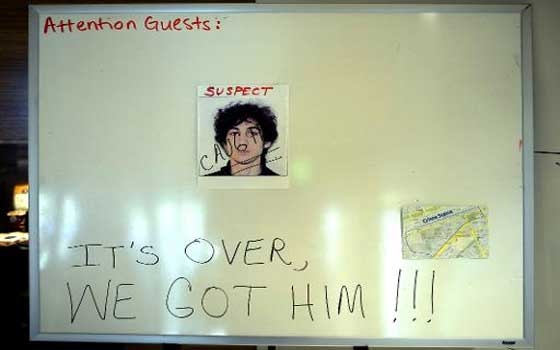 Attention Guests:
SUSPECT
CAUGHT
Crime Scene
IT'S OVER,
WE GOT HIM!!!